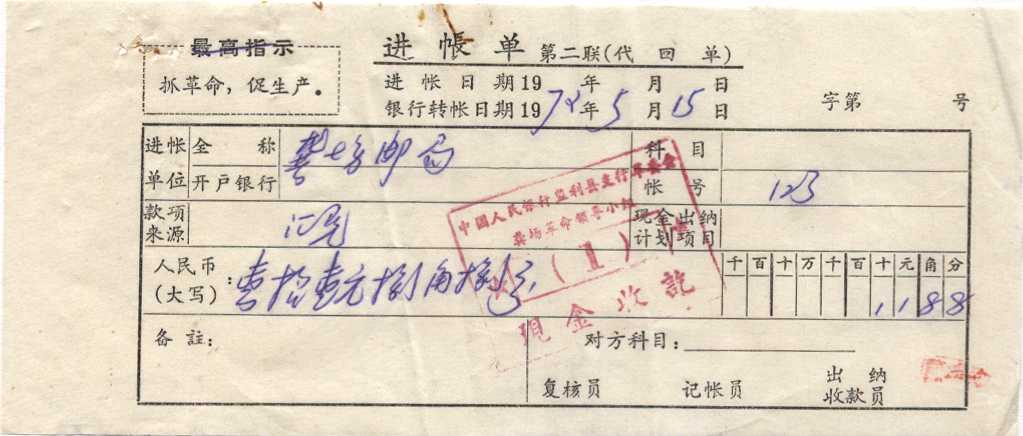 最高指示
抓革命，促生产。
进帐单 第二联(代回单)
进帐日期19 年 月 日
银行转帐日期1972年5月15日
字第 号
进帐单位 全称 龚场邮局 科目
开户银行 帐号 123
款项来源 汇兑 现金出纳计划项目
人民币(大写)： 壹拾壹元捌角捌分
千百十万千百十元角分
1 1 8 8
中國人民银行监利县支行革委会
龚场革命领导小组
(1)
現金收訖
备註：
对方科目：
复核员 记帐员 出纳收款员